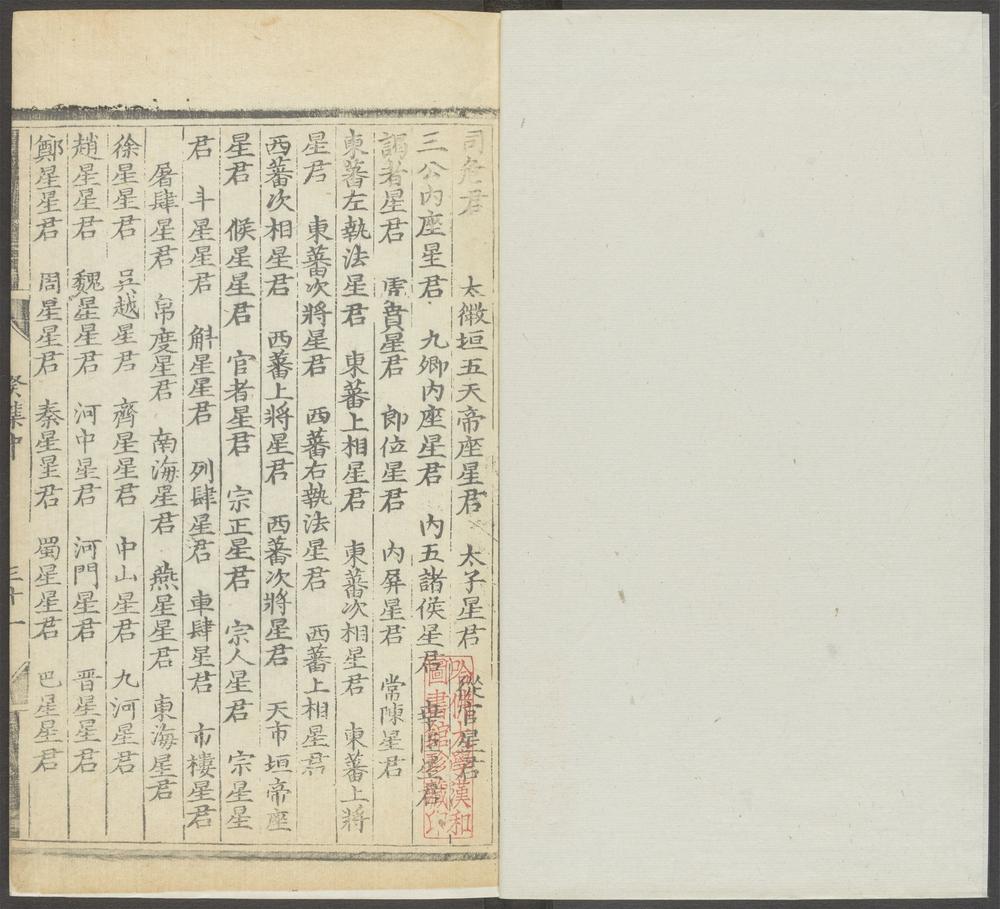 司危君　太微垣五天帝座星君　太子星君　從官星君
三公內座星君　九卿內座星君　內五諸侯星君　幸臣星君
謁者星君　虎賁星君　郎位星君　內屏星君　常陳星君
東蕃左執法星君　東蕃上相星君　東蕃次相星君　東蕃上將
星君　東蕃次將星君　西蕃右執法星君　西蕃上相星君
西蕃次相星君　西蕃上將星君　西蕃次將星君　天市垣帝座
星君　候星星君　官者星君　宗正星君　宗人星君　宗星星
君　斗星星君　斛星星君　列肆星君　車肆星君　市樓星君
屠肆星君　帛度星君　南海星君　燕星星君　東海星君
徐星星君　吳越星君　齊星星君　中山星君　九河星君
趙星星君　魏星星君　河中星君　河門星君　晉星星君
鄭星星君　周星星君　秦星星君　蜀星星君　巴星星君
癸集中
三十一
哈佛大學漢和
圖書館珍藏印